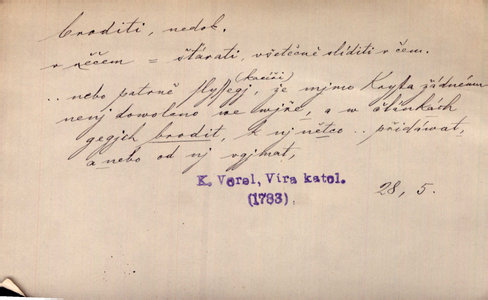 broditi, nedok.
v něčem = šťárati, všetečně slíditi v čem.
(kacíři)
.. nebo patrně slyssegj, že mjmo Krysta žádnému
nenj dowoleno we wjře, a w člankách
gegjch brodit, k nj nětco .. přidáwat,
a nebo od nj vgjmat,
K. Verel, Víra katol.
(1783).
28, 5.